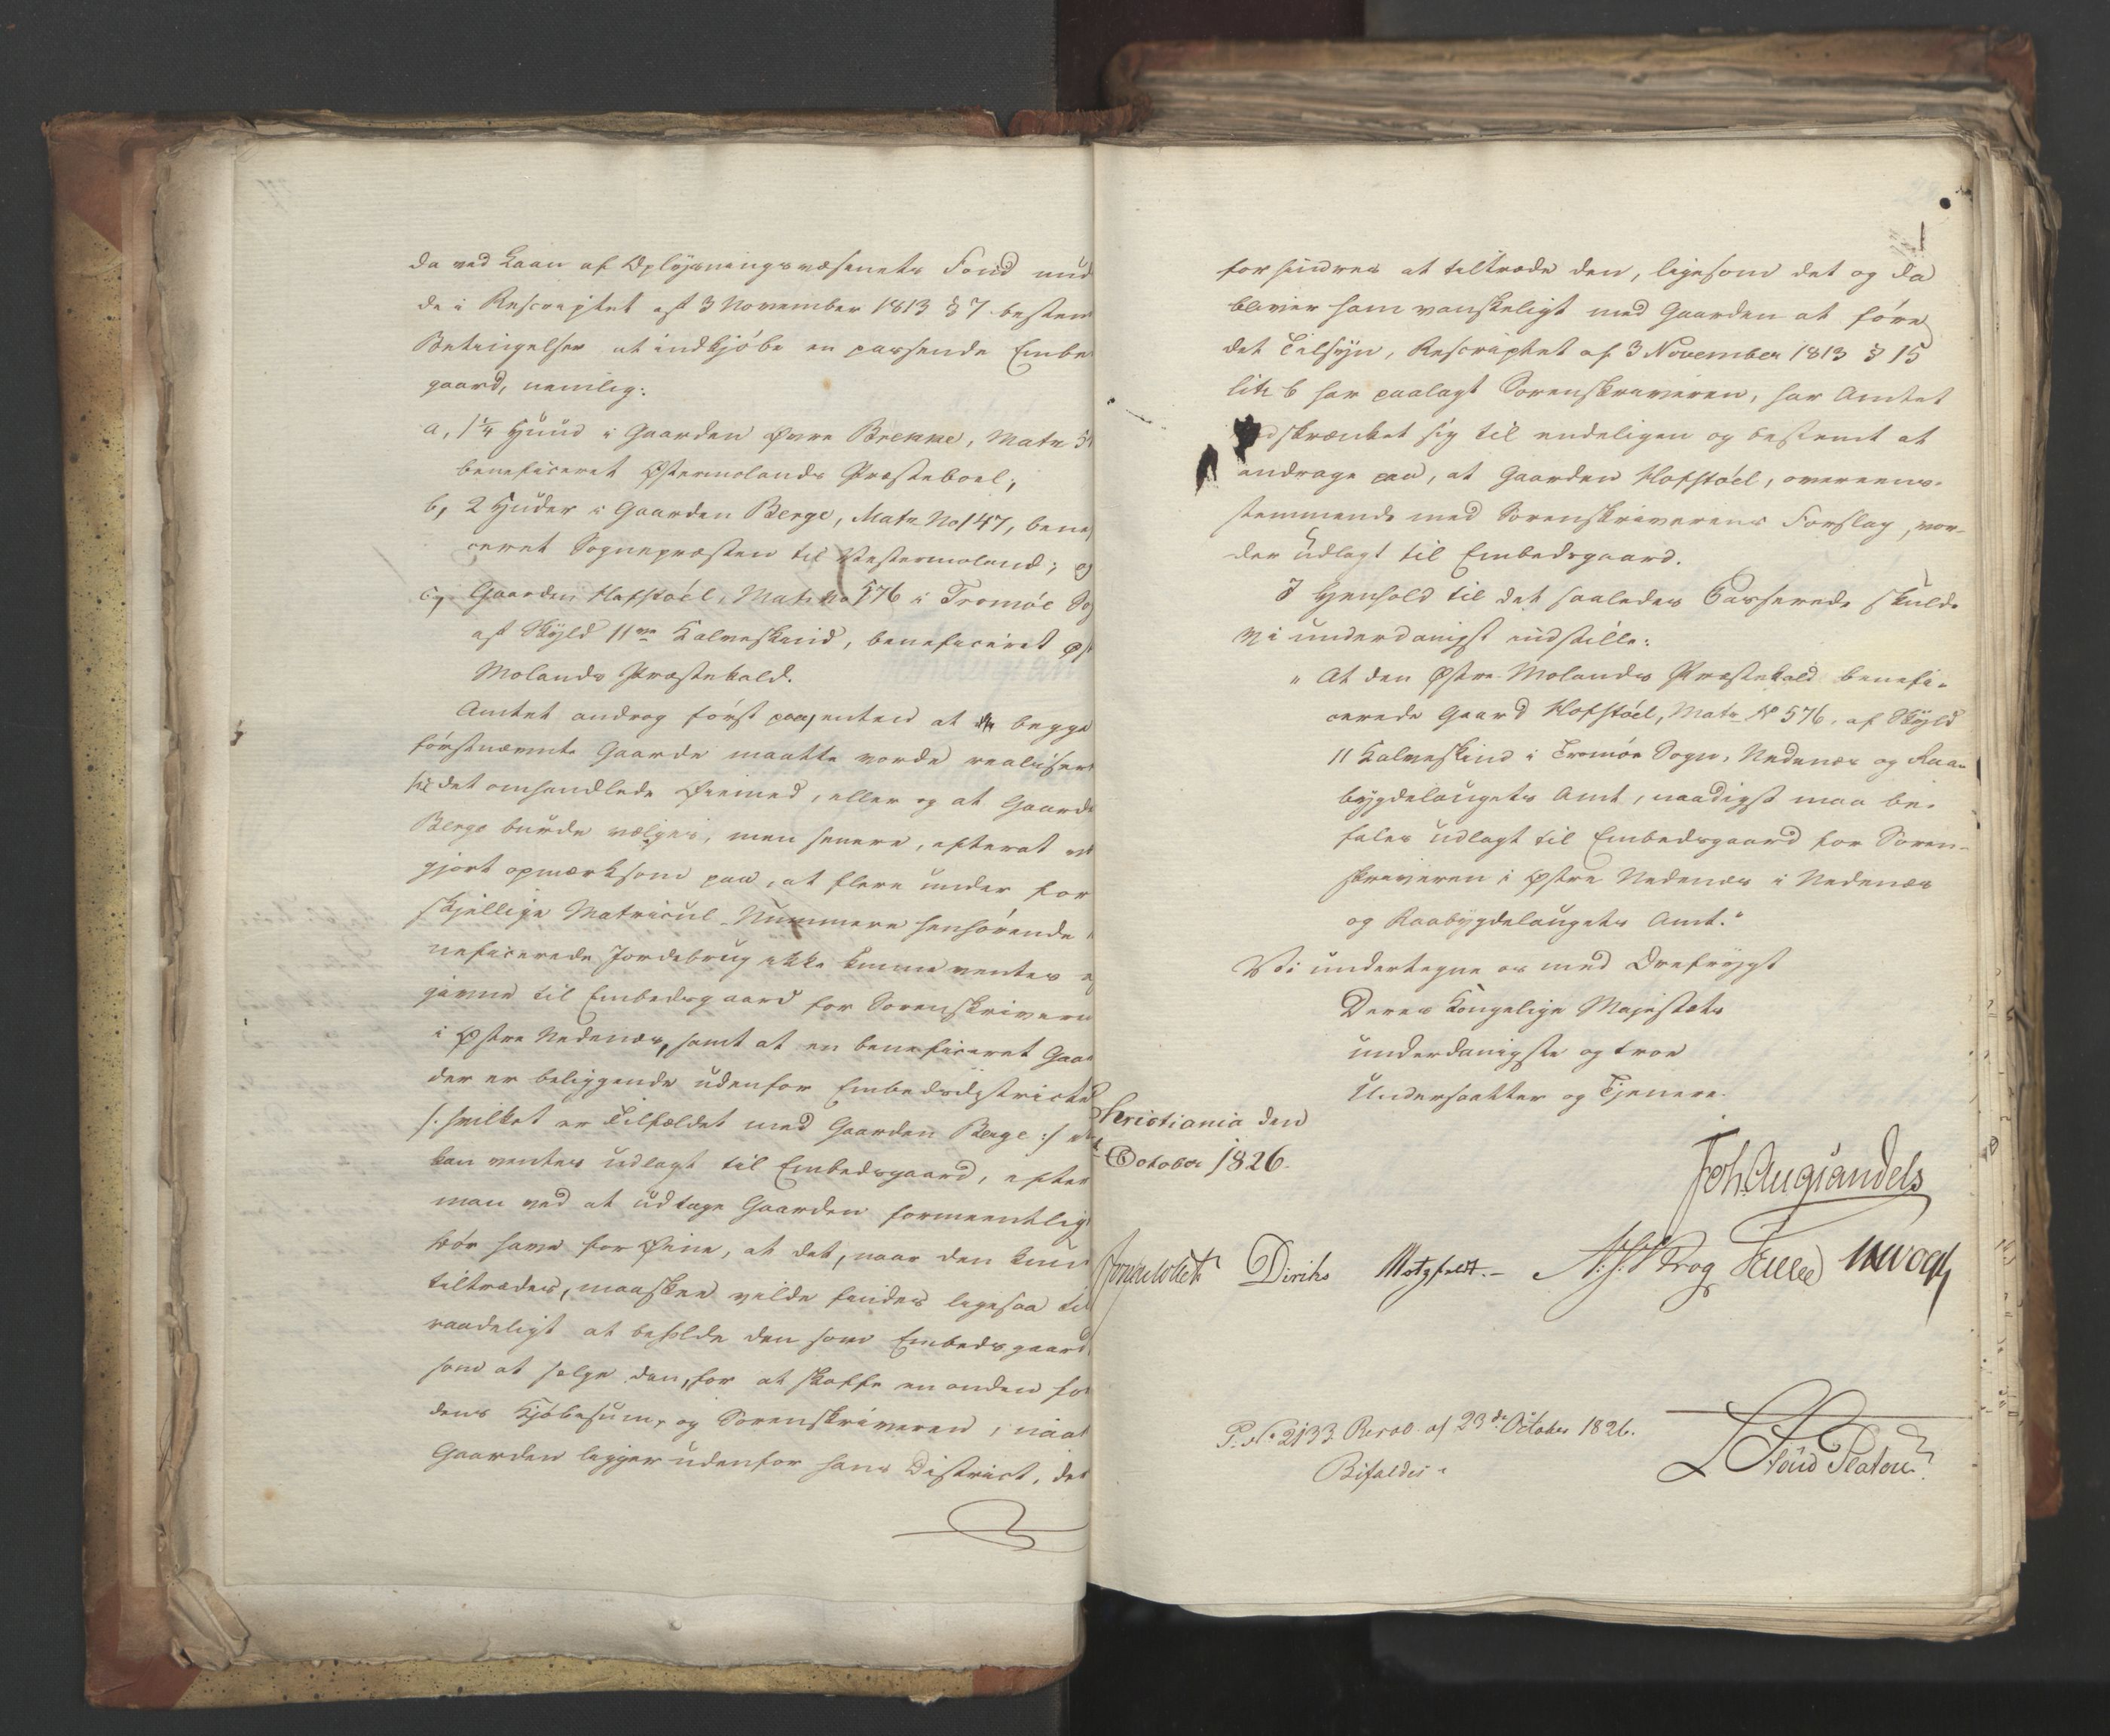 da ved Laan af Oplysningsvæsenets Fond und
de i Rescriptet af 3 November 1813 § 7 bestem
Betingelser at indkjøbe en passende Embe
gaard, nemlig:
a, 1 1/4 Huud i Gaarden Øvre Brekke, Matr
beneficeret Østermolands Præsteboel;
b, 2 Huder i Gaarden Berge, Matr No 147, bene
ceret Sognepræsten til Vestermoland; og
c, Gaarden Hofstöel, Matr No 576 i Tromøe So
af Skyld 11 Kalveskind, beneficeret Øst
Molands Præstekald.
Amtet androg först paa, enten at de begge
förstnævnte Gaarde maatte vorde realiser
til det omhandlede Øiemed, eller og at Gaard
Berge burde vælges, men senere, efterat
gjort opmærksom paa, at flere under for
skjellige Matricul-Nummere henhörende
neficerede Jordebrug ikke kunne ventes
givne til Embedsgaard for Sorenskriveren
i Østre Nedenæs, samt at en beneficeret Gaar
der er beliggende udenfor Embedsdistrictet
/: hvilket er Tilfældet med Gaarden Berge :/
kan ventes udlagt til Embedsgaard, efter
man ved at udtage Gaarden formeentlig
bör have for Øine, at det, naar den kun
tiltrædes, maaskee vilde findes ligesaa til
raadeligt at beholde den som Embedsgaard
som at sælge den, for at skaffe en anden for
dens Kjöbesum, og Sorenskriveren, naar
Gaarden ligger udenfor hans District, der
forhindres at tiltræde den, ligesom det og da
bliver ham vanskeligt med Gaarden at före
det Tilsyn, Rescriptet af 3 November 1813 § 15
litr b har paalagt Sorenskriveren, har Amtet
indskrænket sig til endeligen og bestemt at
andrage paa, at Gaarden Hofstöel, overeens-
stemmende med Sorenskriverens Forslag, vor-
der udlagt til Embedsgaard.
I Henhold til det saaledes Passerede skulde
vi underdanigst indstille:
"At den Østre Molands Præstekald benefi-
cerede Gaard Hofstöel, Matr No 576, af Skyld
11 Kalveskind i Tromöe Sogn, Nedenæs og Raa-
bygdelaugets Amt, naadigst maa be-
fales udlagt til Embedsgaard for Soren-
skriveren i Østre Nedenæs i Nedenæs
og Raabygdelaugets Amt."
Vi undertegne os med Dybefrygt
Deres Kongelige Majestæts
underdanigste og troe
Undersaatter og Tjenere.
Christiania den
October 1826.
Joh Aug Sandels
Diriks Motzfeldt. A. S. Krog
P. No 2133 Resol. af 23de October 1826.
Bifaldes
Stoud Platou